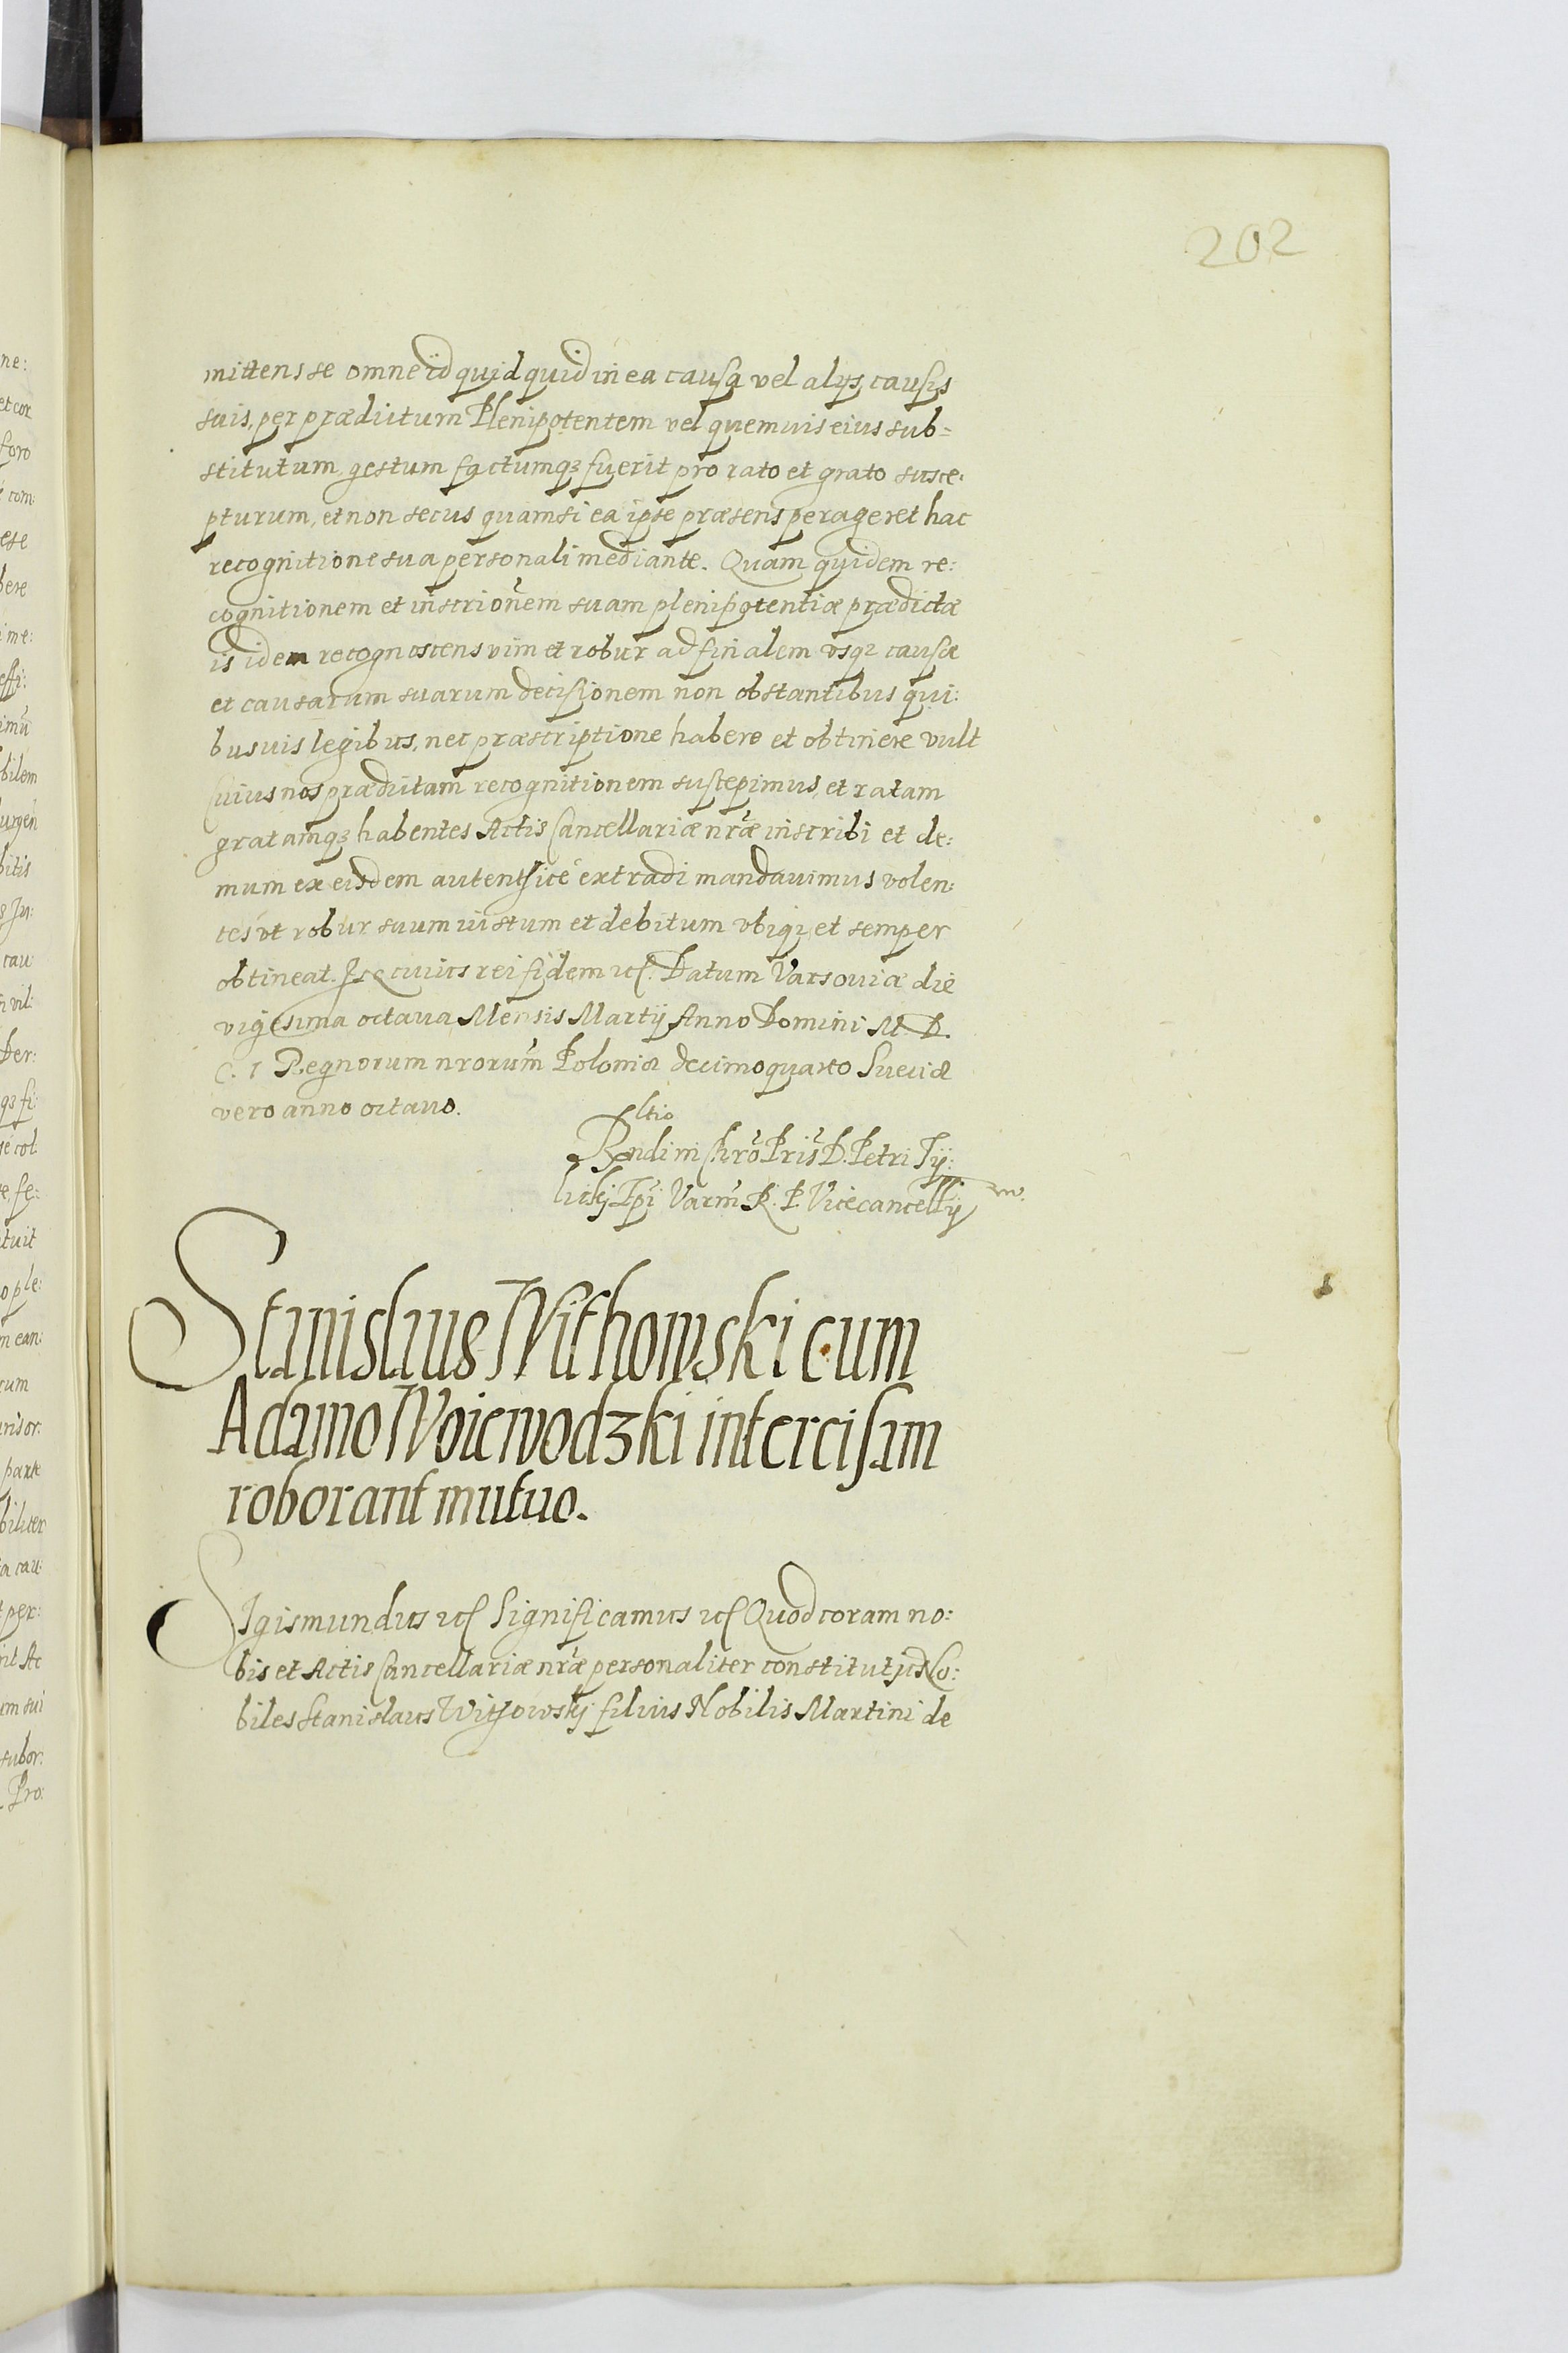 202
mittens se omne id quidquid in ea causa vel alijs causis
suis, per prædictum Plenipotentem vel quemuis eius sub=
stitutum gestum factumq3 fuerit pro rato et grato susce:
pturum, et non secus quam si ea ipse præsens perageret hac
recognitione sua personali mediante. Quam quidem re:
cognitionem et inscrionem suam plenipotentiæ prædictæ
is idem recognoscens vim et robur ad finalem vsq3 causæ
et causarum suarum decisionem non obstantibus qui:
busuis legibus, nec præscriptione habere et obtinere vult
Cuius nos prædictam recognitionem suscepimus, et ratam
gratamq3 habentes Actis Cancellariæ nræ inscribi et de:
mum ex eisdem autentice extradi mandauimus volen:
tes vt robur suum iustum et debitum vbiq3 et semper
obtineat. In cuius rei fidem etc. Datum Varsouiæ die
vigesima octaua Mensis Martij Anno Domini M. D.
C. I Regnorum nrorum Poloniæ decimoquarto Sueciæ
vero anno octauo.
Rltio
Rndi in Chro Pris D. Petri Tij:
licki Epi Varm R. P. Vicecancellij
Stanislaus Withowski cum
Adamo Woiewodzki intercisam
roborant mutuo.
Sigismundus etc Significamus etc Quod coram no:
bis et Actis Cancellariæ nræ personaliter constitutus No:
biles Stanislaus Withowski filius Nobilis Martini de